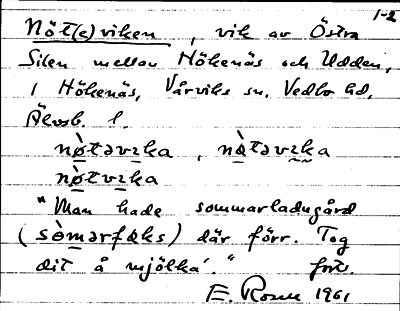 1-2
Nöt(e)viken, vik av Östra
Silen mellan Hökenäs och Udden,
i Hökenäs, Vårviks sn, Vedbo hd,
Älvsb. l.
nø̀təvɪka, nàtəvɪka
nø̀tvɪka
"Man hade sommarladugård
(sòmərfəks) där förr. Tog
dit å mjölka'."   forts.
E. Rosen 1961